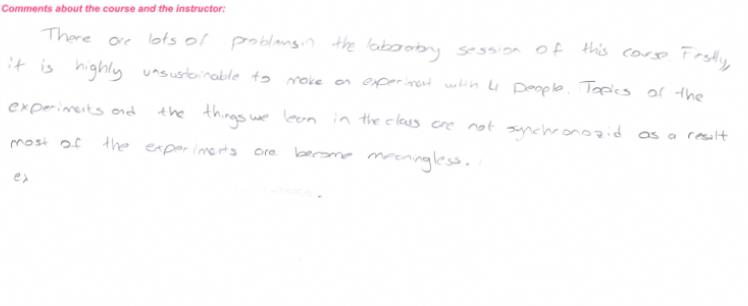 Comments about the course and the instructor:
There are lots of problems in the laboratory session of this course Firstly,
it is highly unsustainable to make an experiment with 4 people. Topics of the
experiments and the things we learn in the class are not synchronozid as a result
most of the experiments are become meaningless.
ex